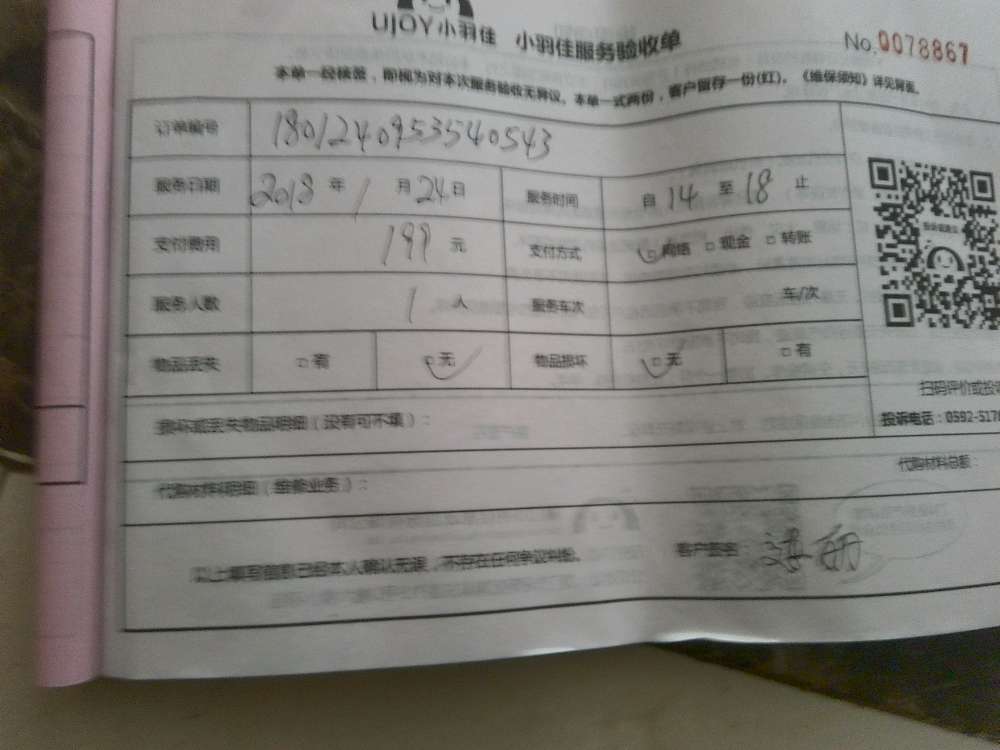 UJOY小羽佳 小羽佳服务验收单 No.0078867
本单一经核签，即视为对本次服务验收无异议。本单一式两份，客户留存一份(红)。《维保须知》详见背面。
订单编号 1801240953540543
服务日期 2018年1月24日 服务时间 自14至18止
支付费用 199元 支付方式 网络 现金 转账
服务人数 1人 服务车次 车/次
物品丢失 有 无 物品损坏 无 有
扫码评价或投
损坏或丢失物品明细（没有可不填）： 投诉电话：0592-517
代购材料明细（维修业务）： 代购材料总额：
以上填写信息已经本人确认无误，不存在任何争议纠纷。 客户签名：